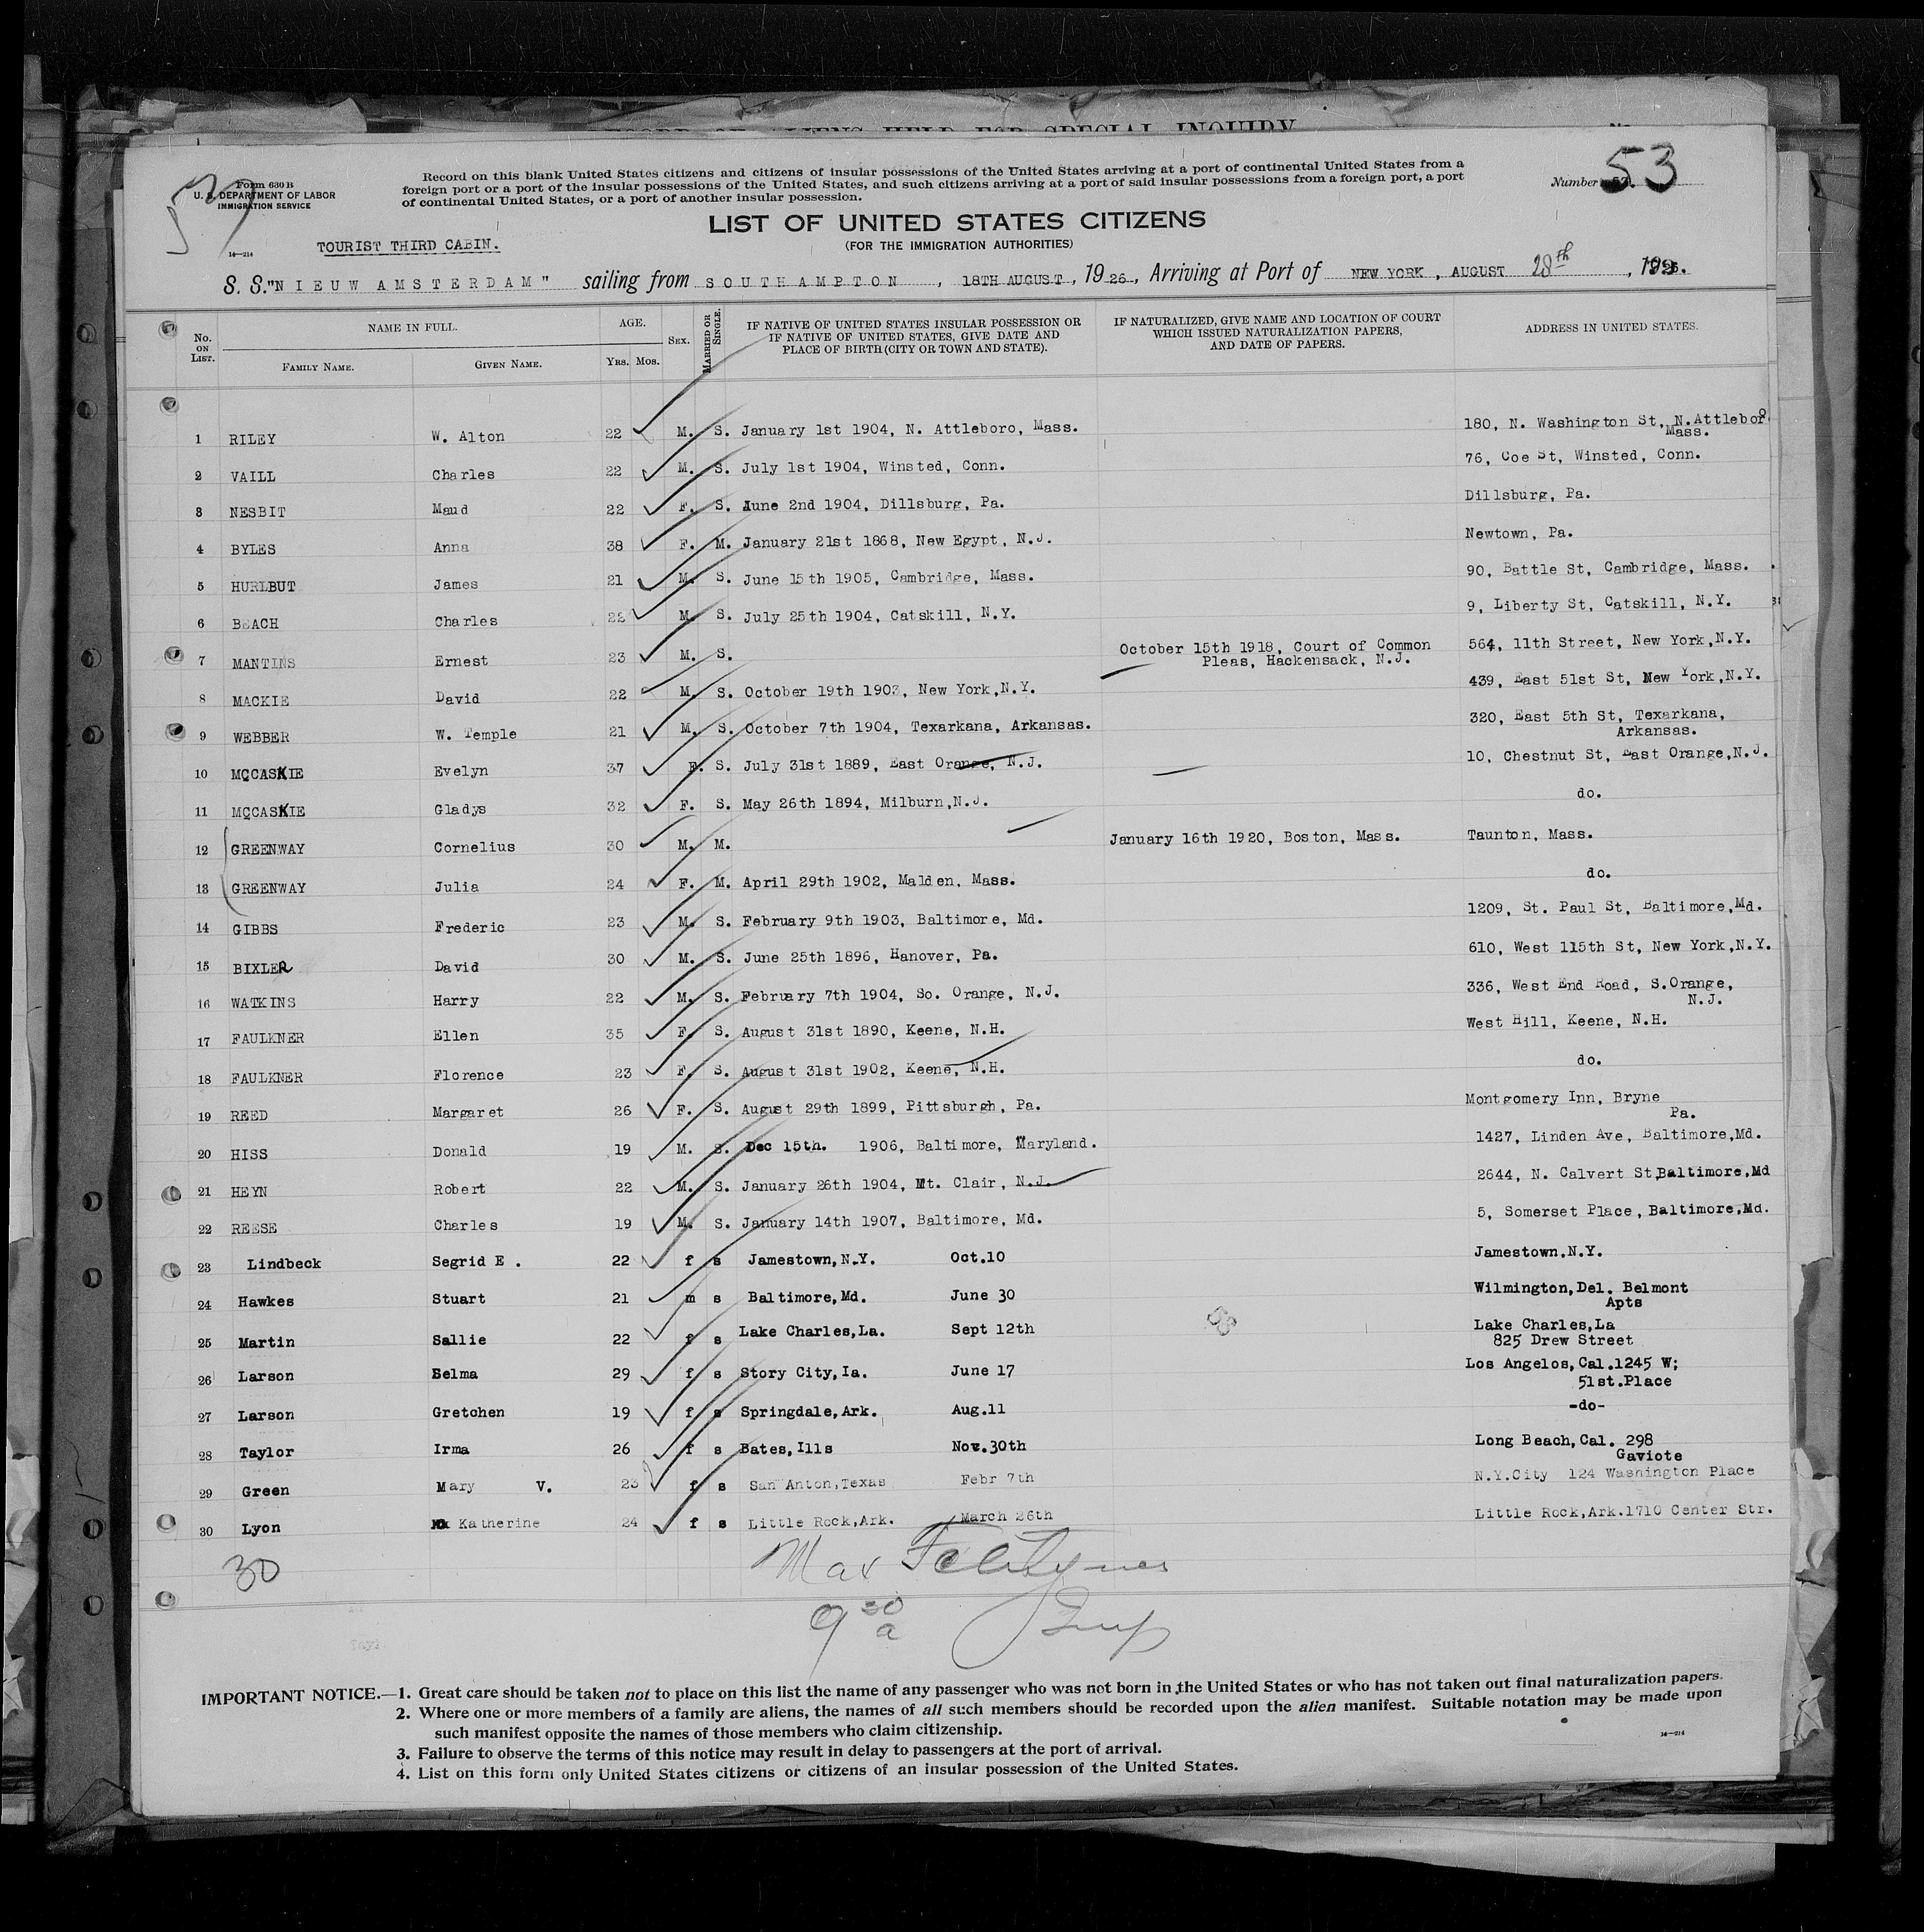 RECORD OF ALIENS HELD FOR SPECIAL INQUIRY
Form 630 B
U. S. DEPARTMENT OF LABOR
IMMIGRATION SERVICE
14—214
Record on this blank United States citizens and citizens of insular possessions of the United States arriving at a port of continental United States from a
foreign port or a port of the insular possessions of the United States, and such citizens arriving at a port of said insular possessions from a foreign port, a port
of continental United States, or a port of another insular possession.
Number 53
LIST OF UNITED STATES CITIZENS
(FOR THE IMMIGRATION AUTHORITIES)
TOURIST THIRD CABIN.
S. S. "NIEUW AMSTERDAM" sailing from SOUTHAMPTON, 18TH AUGUST, 1926, Arriving at Port of NEW YORK, AUGUST 28th, 1926.
No. ON LIST. NAME IN FULL. AGE. SEX. MARRIED OR SINGLE. IF NATIVE OF UNITED STATES INSULAR POSSESSION OR IF NATIVE OF UNITED STATES, GIVE DATE AND PLACE OF BIRTH (CITY OR TOWN AND STATE). IF NATURALIZED, GIVE NAME AND LOCATION OF COURT WHICH ISSUED NATURALIZATION PAPERS, AND DATE OF PAPERS. ADDRESS IN UNITED STATES.
FAMILY NAME. GIVEN NAME. YRS. MOS.
1 RILEY W. Alton 22 M. S. January 1st 1904, N. Attleboro, Mass. 180, N. Washington St, N.Attleboro
Mass.
2 VAILL Charles 22 M. S. July 1st 1904, Winsted, Conn. 76, Coe St, Winsted, Conn.
3 NESBIT Maud 22 F. S. June 2nd 1904, Dillsburg, Pa. Dillsburg, Pa.
4 BYLES Anna 38 F. M. January 21st 1868, New Egypt, N.J. Newtown, Pa.
5 HURLBUT James 21 M. S. June 15th 1905, Cambridge, Mass. 90, Battle St, Cambridge, Mass.
6 BEACH Charles 22 M. S. July 25th 1904, Catskill, N.Y. 9, Liberty St, Catskill, N.Y.
7 MANTINS Ernest 23 M. S. October 15th 1918, Court of Common 564, 11th Street, New York,N.Y.
Pleas, Hackensack, N.J.
8 MACKIE David 22 M. S. October 19th 1903, New York,N.Y. 439, East 51st St, New York,N.Y.
9 WEBBER W. Temple 21 M. S. October 7th 1904, Texarkana, Arkansas. 320, East 5th St, Texarkana,
Arkansas.
10 MCCASKIE Evelyn 37 F. S. July 31st 1889, East Orange, N.J. 10, Chestnut St, East Orange,N.J.
11 MCCASKIE Gladys 32 F. S. May 26th 1894, Milburn,N.J. do.
12 GREENWAY Cornelius 30 M. M. January 16th 1920, Boston, Mass. Taunton, Mass.
13 GREENWAY Julia 24 F. M. April 29th 1902, Malden, Mass. do.
14 GIBBS Frederic 23 M. S. February 9th 1903, Baltimore, Md. 1209, St. Paul St, Baltimore,Md.
15 BIXLER David 30 M. S. June 25th 1896, Hanover, Pa. 610, West 115th St, New York,N.Y.
16 WATKINS Harry 22 M. S. February 7th 1904, So. Orange, N.J. 336, West End Road, S.Orange,
N.J.
17 FAULKNER Ellen 35 F. S. August 31st 1890, Keene, N.H. West Hill, Keene, N.H.
18 FAULKNER Florence 23 F. S. August 31st 1902, Keene, N.H. do.
19 REED Margaret 26 F. S. August 29th 1899, Pittsburgh, Pa. Montgomery Inn, Bryne
Pa.
20 HISS Donald 19 M. S. Dec 15th. 1906, Baltimore, Maryland. 1427, Linden Ave, Baltimore,Md.
21 HEYN Robert 22 M. S. January 26th 1904, Mt. Clair, N.J. 2644, N. Calvert St,Baltimore,Md
22 REESE Charles 19 M. S. January 14th 1907, Baltimore, Md. 5, Somerset Place, Baltimore,Md.
23 Lindbeck Segrid E . 22 f s Jamestown,N.Y. Oct.10 Jamestown.N.Y.
24 Hawkes Stuart 21 m s Baltimore,Md. June 30 Wilmington,Del. Belmont
Apts
25 Martin Sallie 22 f s Lake Charles,La. Sept 12th Lake Charles,La
825 Drew Street
26 Larson Belma 29 f s Story City,Ia. June 17 Los Angelos,Cal.1245 W;
51st.Place
27 Larson Gretchen 19 f s Springdale,Ark. Aug.11 -do-
28 Taylor Irma 26 f s Bates,Ills Nov.30th Long Beach,Cal. 298
Gaviote
29 Green Mary V. 23 f s San Anton,Texas Febr 7th N.Y.City 124 Washington Place
30 Lyon Katherine 24 f s Little Rock,Ark. March 26th Little Rock,Ark.1710 Center Str.
30 Max
9 30 a
IMPORTANT NOTICE.—1. Great care should be taken not to place on this list the name of any passenger who was not born in the United States or who has not taken out final naturalization papers.
2. Where one or more members of a family are aliens, the names of all such members should be recorded upon the alien manifest. Suitable notation may be made upon
such manifest opposite the names of those members who claim citizenship.
3. Failure to observe the terms of this notice may result in delay to passengers at the port of arrival.
4. List on this form only United States citizens or citizens of an insular possession of the United States.
14—214